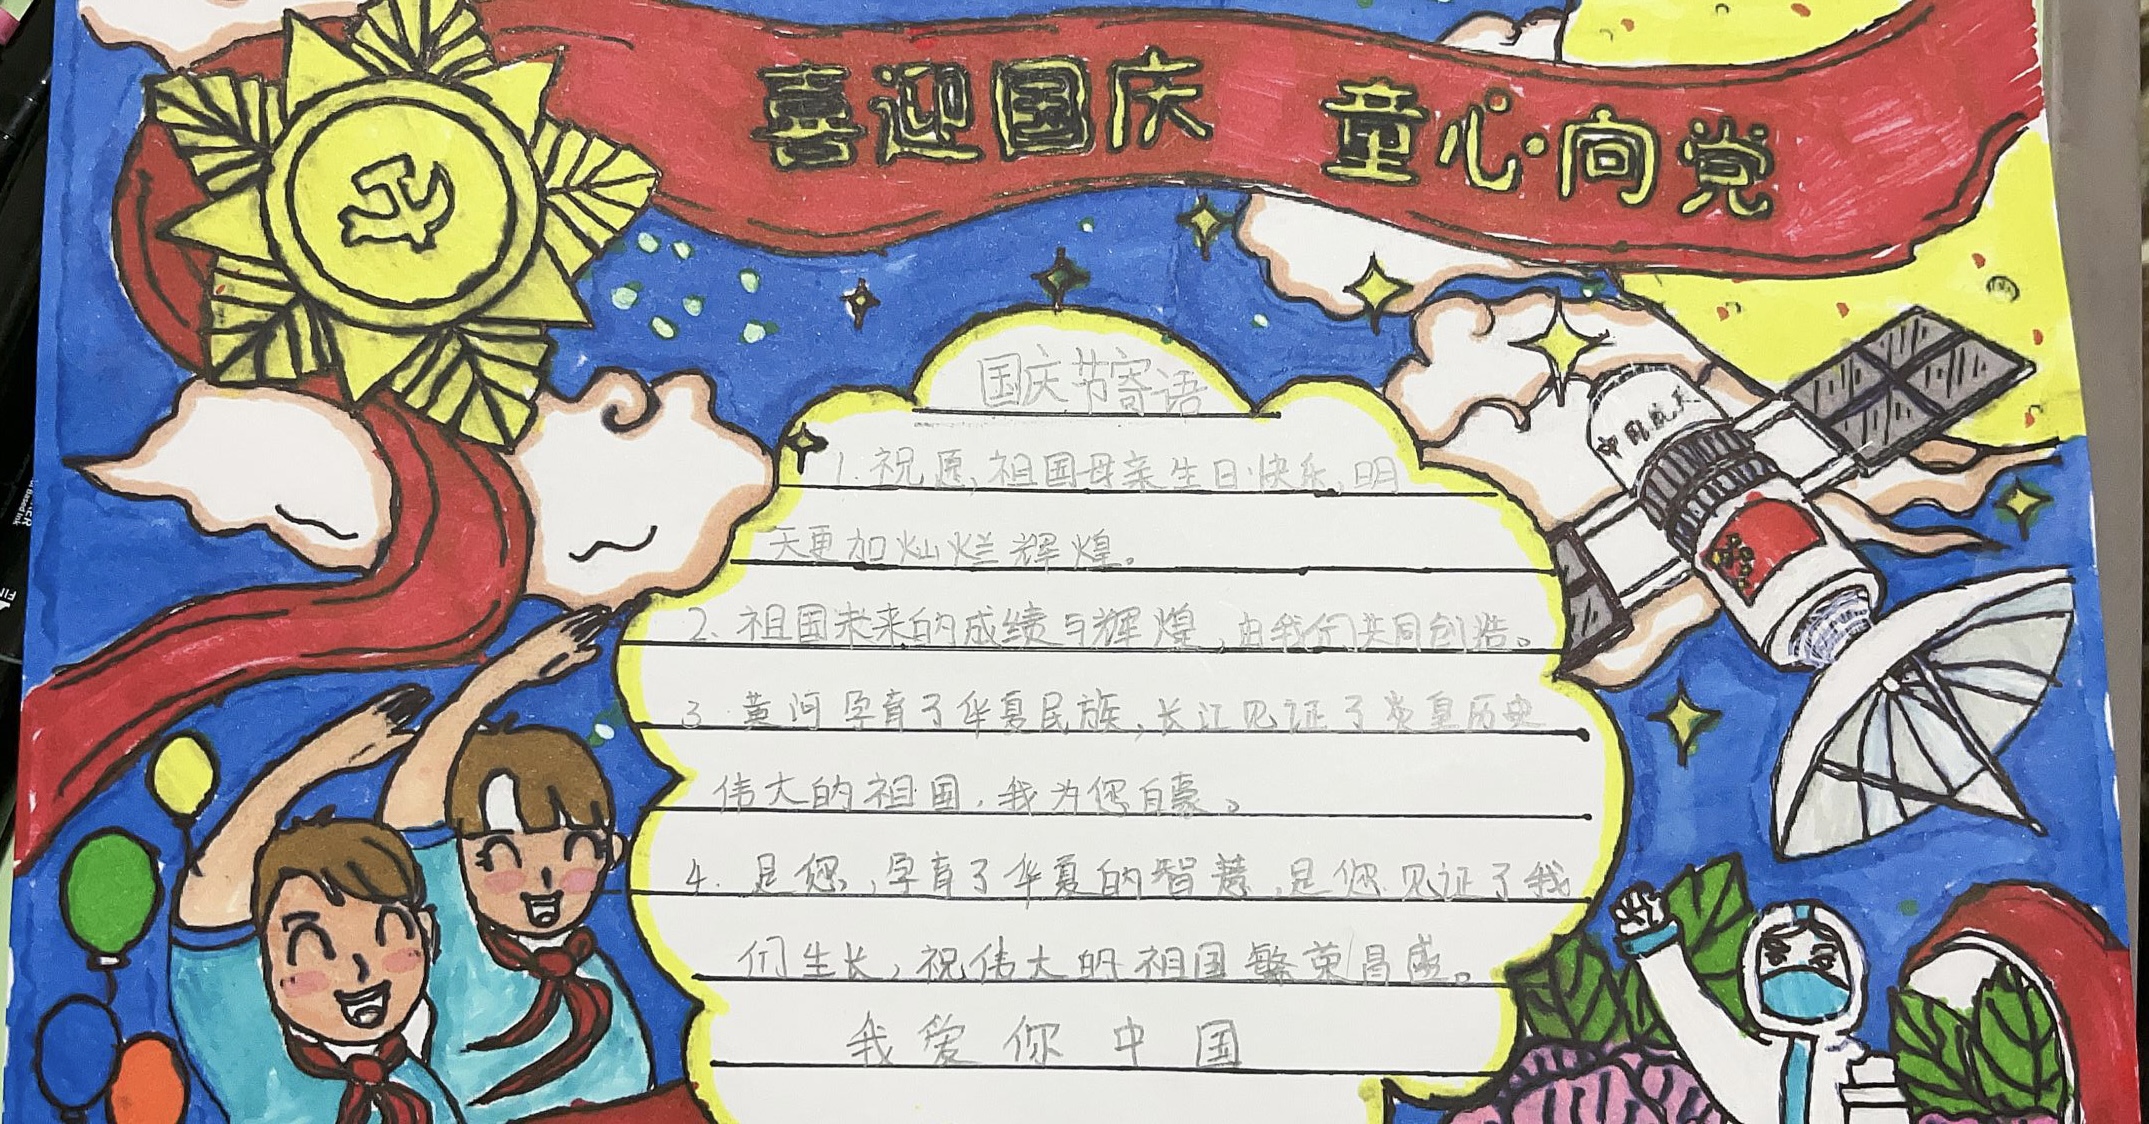 喜迎国庆 童心向党
国庆节寄语
1. 祝愿,祖国母亲生日快乐,明
天更加灿烂辉煌。
2. 祖国未来的成绩与辉煌,由我们共同创造。
3. 黄河孕育了华夏民族,长江见证了炎皇历史
伟大的祖国,我为您自豪。
4. 是您,孕育了华夏的智慧,是您见证了我
们生长,祝伟大的祖国繁荣昌盛。
我爱你中国
中国航天